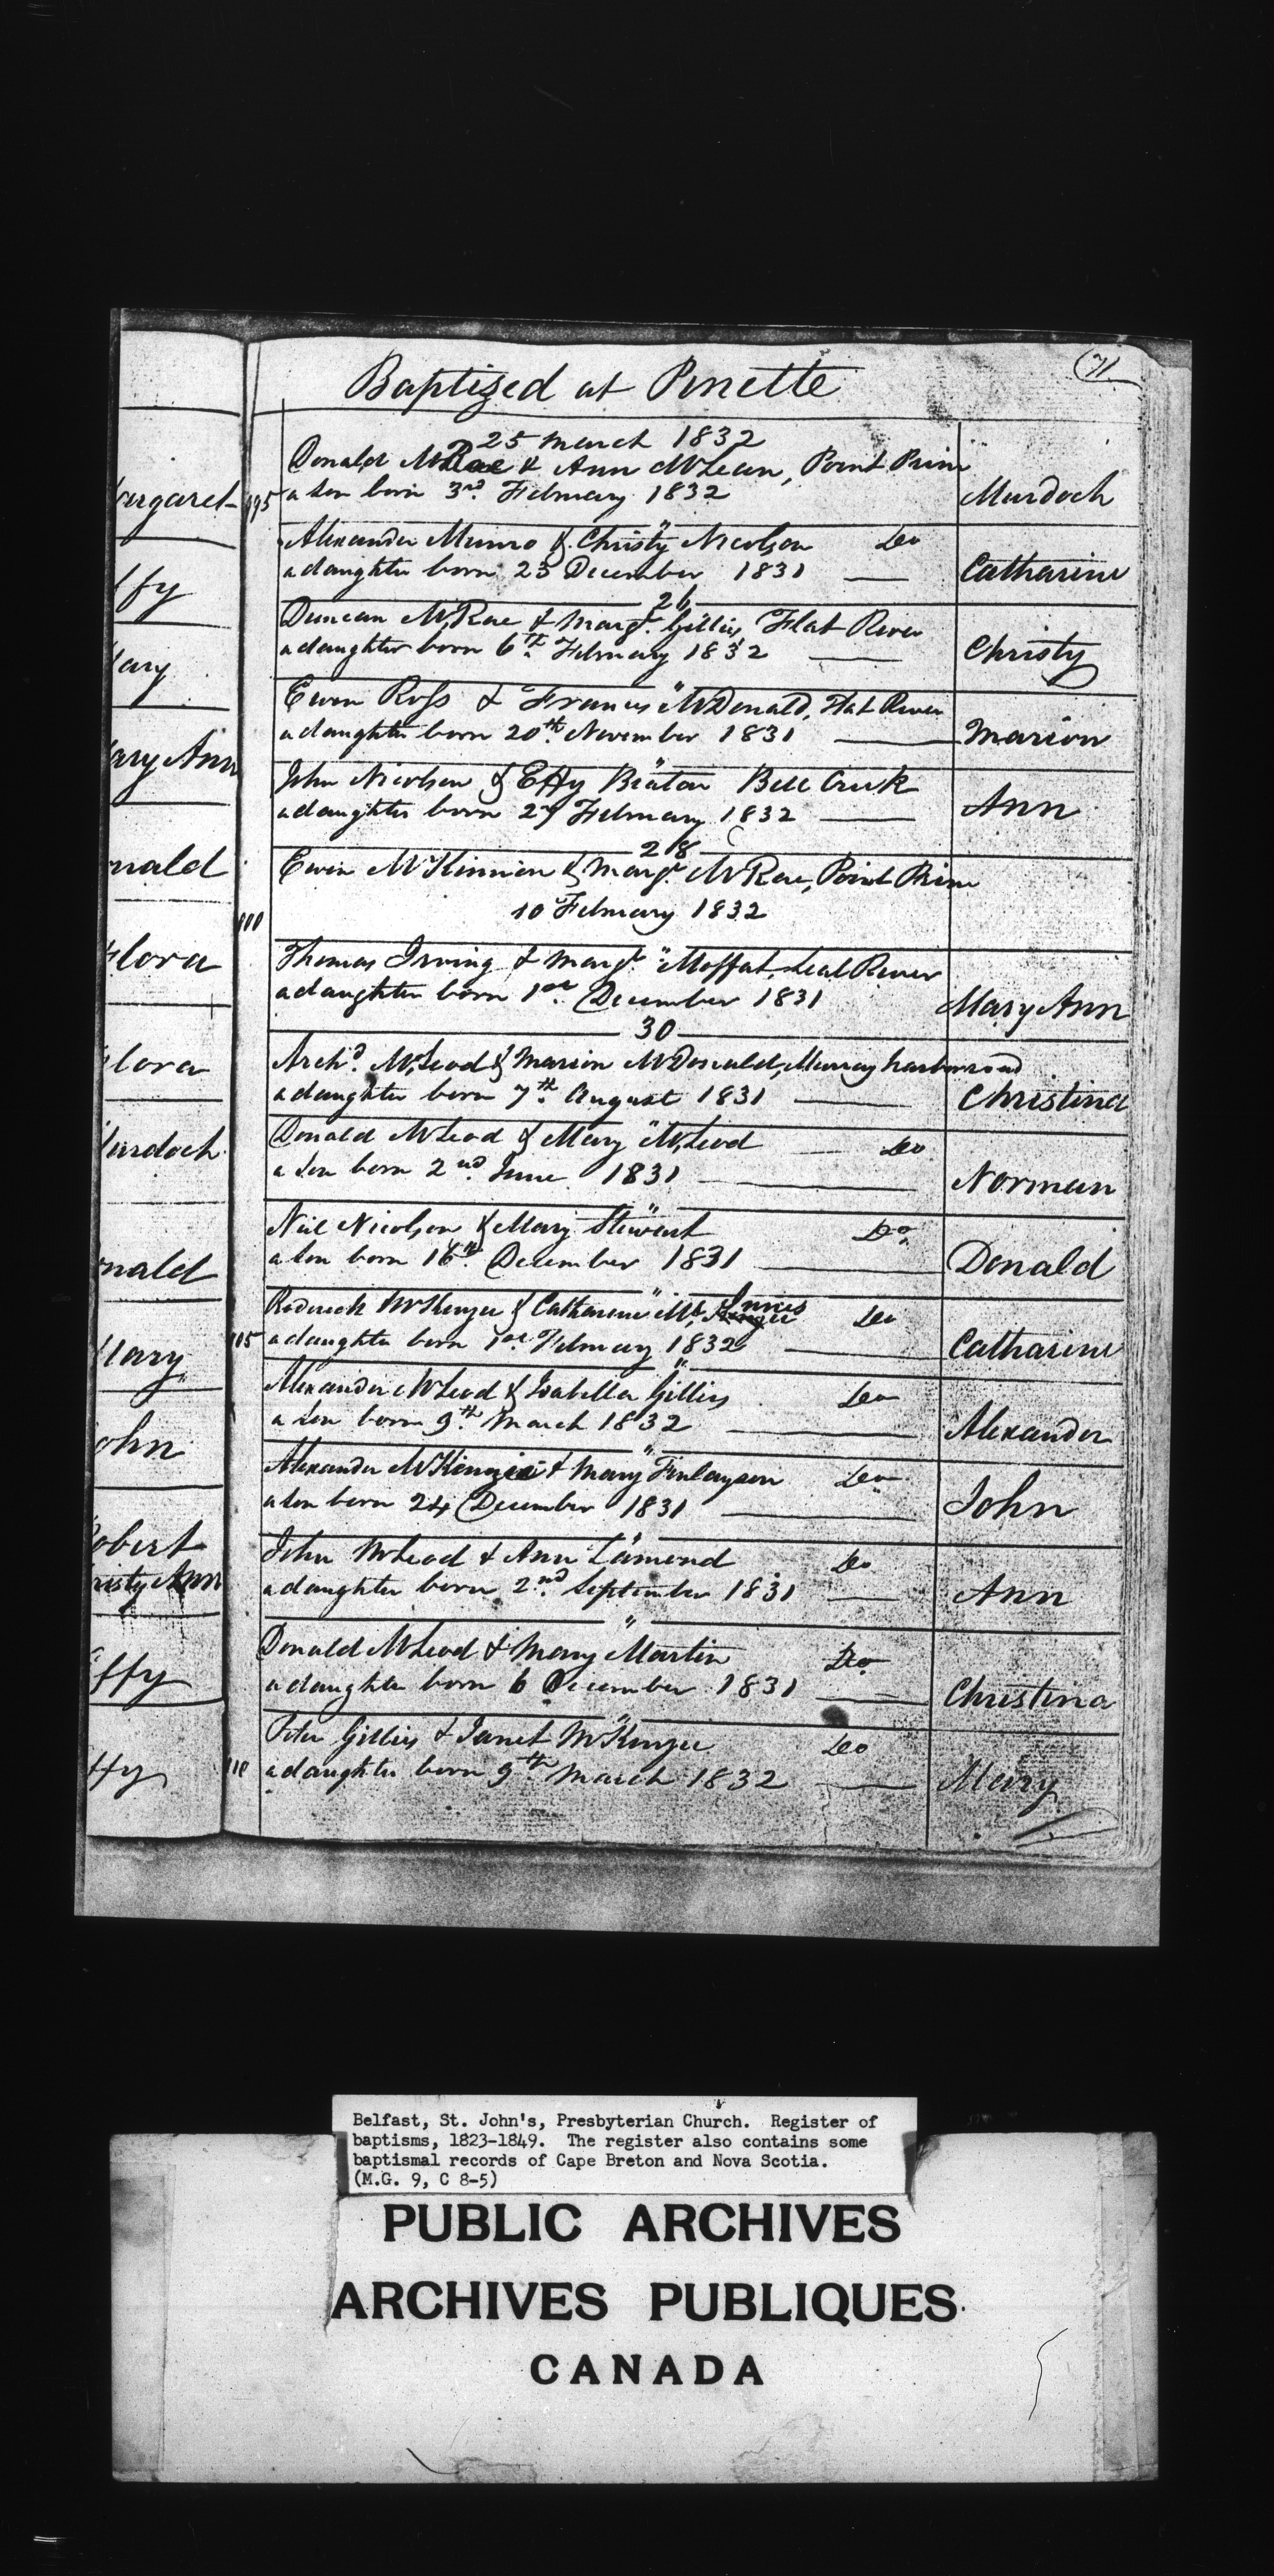 71
Baptized at Pinette
25 March 1832
Donald McRae & Ann McLean, Point Prim
995 a son born 3rd. February 1832 Murdoch
"
Alexander Munro & Christy Nicolson Do
a daughter born 23 December 1831 Catharine
26
Duncan McRae & Margt. Gillis, Flat River
a daughter born 6th. February 1832 Christy
"
Ewen Ross & Frances McDonald, Flat River
a daughter born 20th. November 1831 Marion
"
John Nicolson & Effy Beaton Bell Creek
a daughter born February 1832 Ann
28
Ewin McKinnon & Margt. McRae, Point Prim
10 February 1832
"
Thomas Irving & Margt. Moffat, Seal River
a daughter born 1st. December 1831 Mary Ann
30
Archd. McLeod & Marion McDonald, Murray harbor road
a daughter born 7th. August 1831 Christina
"
Donald McLeod & Mary McLeod Do
a son born 2nd June 1831 Norman
"
Neil Nicolson & Mary Stewart Do.
a son born 16th. December 1831 Donald
"
Roderick McKenzie & Catharine Mc Innes Do
a daughter born 1st. February 1832 Catharine
"
Alexander McLeod & Isabella Gillis Do
a son born 9th. March 1832 Alexander
"
Alexander McKenzie & Mary Finlayson Do
a son born 24 December 1831 John
"
John McLeod & Ann Lamond Do
a daughter born 2nd. September 1831 Ann
"
Donald McLeod & Mary Martin Do
a daughter born 6 December 1831 Christina
"
Peter Gillis & Janet McKenzie Do
a daughter born 9th March 1832 Mary
Belfast, St. John's, Presbyterian Church. Register of
baptisms, 1823-1849. The register also contains some
baptismal records of Cape Breton and Nova Scotia.
(M.G. 9, C 8-5)
PUBLIC ARCHIVES
ARCHIVES PUBLIQUES
CANADA